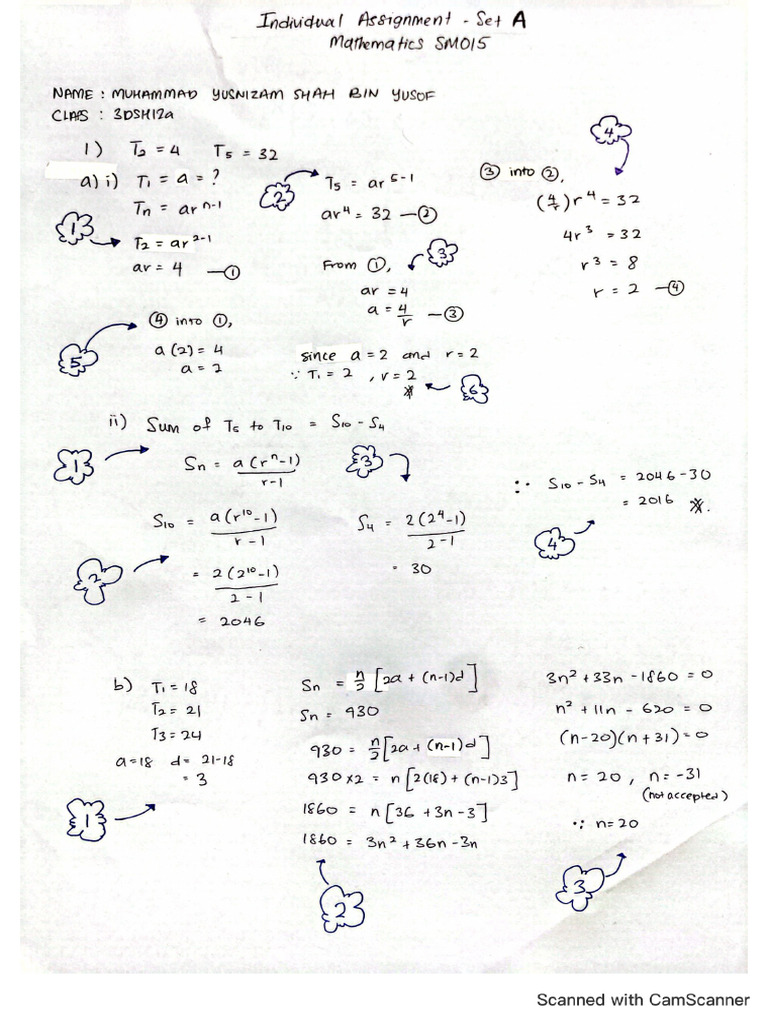 Individual Assignment - Set A
Mathematics SM015
NAME : MUHAMMAD YUSNIZAM SHAH BIN YUSOF
CLASS : 3DSH12a
1) T₂ = 4 T₅ = 32
a) i) T₁ = a = ?
Tn = ar^(n-1)
1
T₂ = ar^(2-1)
ar = 4 — ①
2
T₅ = ar^(5-1)
ar⁴ = 32 — ②
From ①,
3
ar = 4
a = 4/r — ③
4
③ into ②,
(4/r) r⁴ = 32
4r³ = 32
r³ = 8
r = 2 — ④
5
④ into ①,
a (2) = 4
a = 2
since a = 2 and r = 2
∵ T₁ = 2 , r = 2
6
ii) Sum of T₅ to T₁₀ = S₁₀ - S₄
1
Sn = a(rⁿ-1)/r-1
2
S₁₀ = a(r¹⁰-1)/r-1
= 2(2¹⁰-1)/2-1
= 2046
3
S₄ = 2(2⁴-1)/2-1
= 30
∴ S₁₀ - S₄ = 2046 - 30
= 2016
4
b) T₁ = 18
T₂ = 21
T₃ = 24
a = 18 d = 21-18
= 3
1
Sn = n/2 [2a + (n-1)d]
Sn = 930
930 = n/2 [2a + (n-1)d]
930 × 2 = n [2(18) + (n-1)3]
1860 = n [36 + 3n - 3]
1860 = 3n² + 36n - 3n
2
3n² + 33n - 1860 = 0
n² + 11n - 620 = 0
(n-20)(n+31) = 0
n = 20 , n = -31
(not accepted)
∵ n = 20
3
Scanned with CamScanner